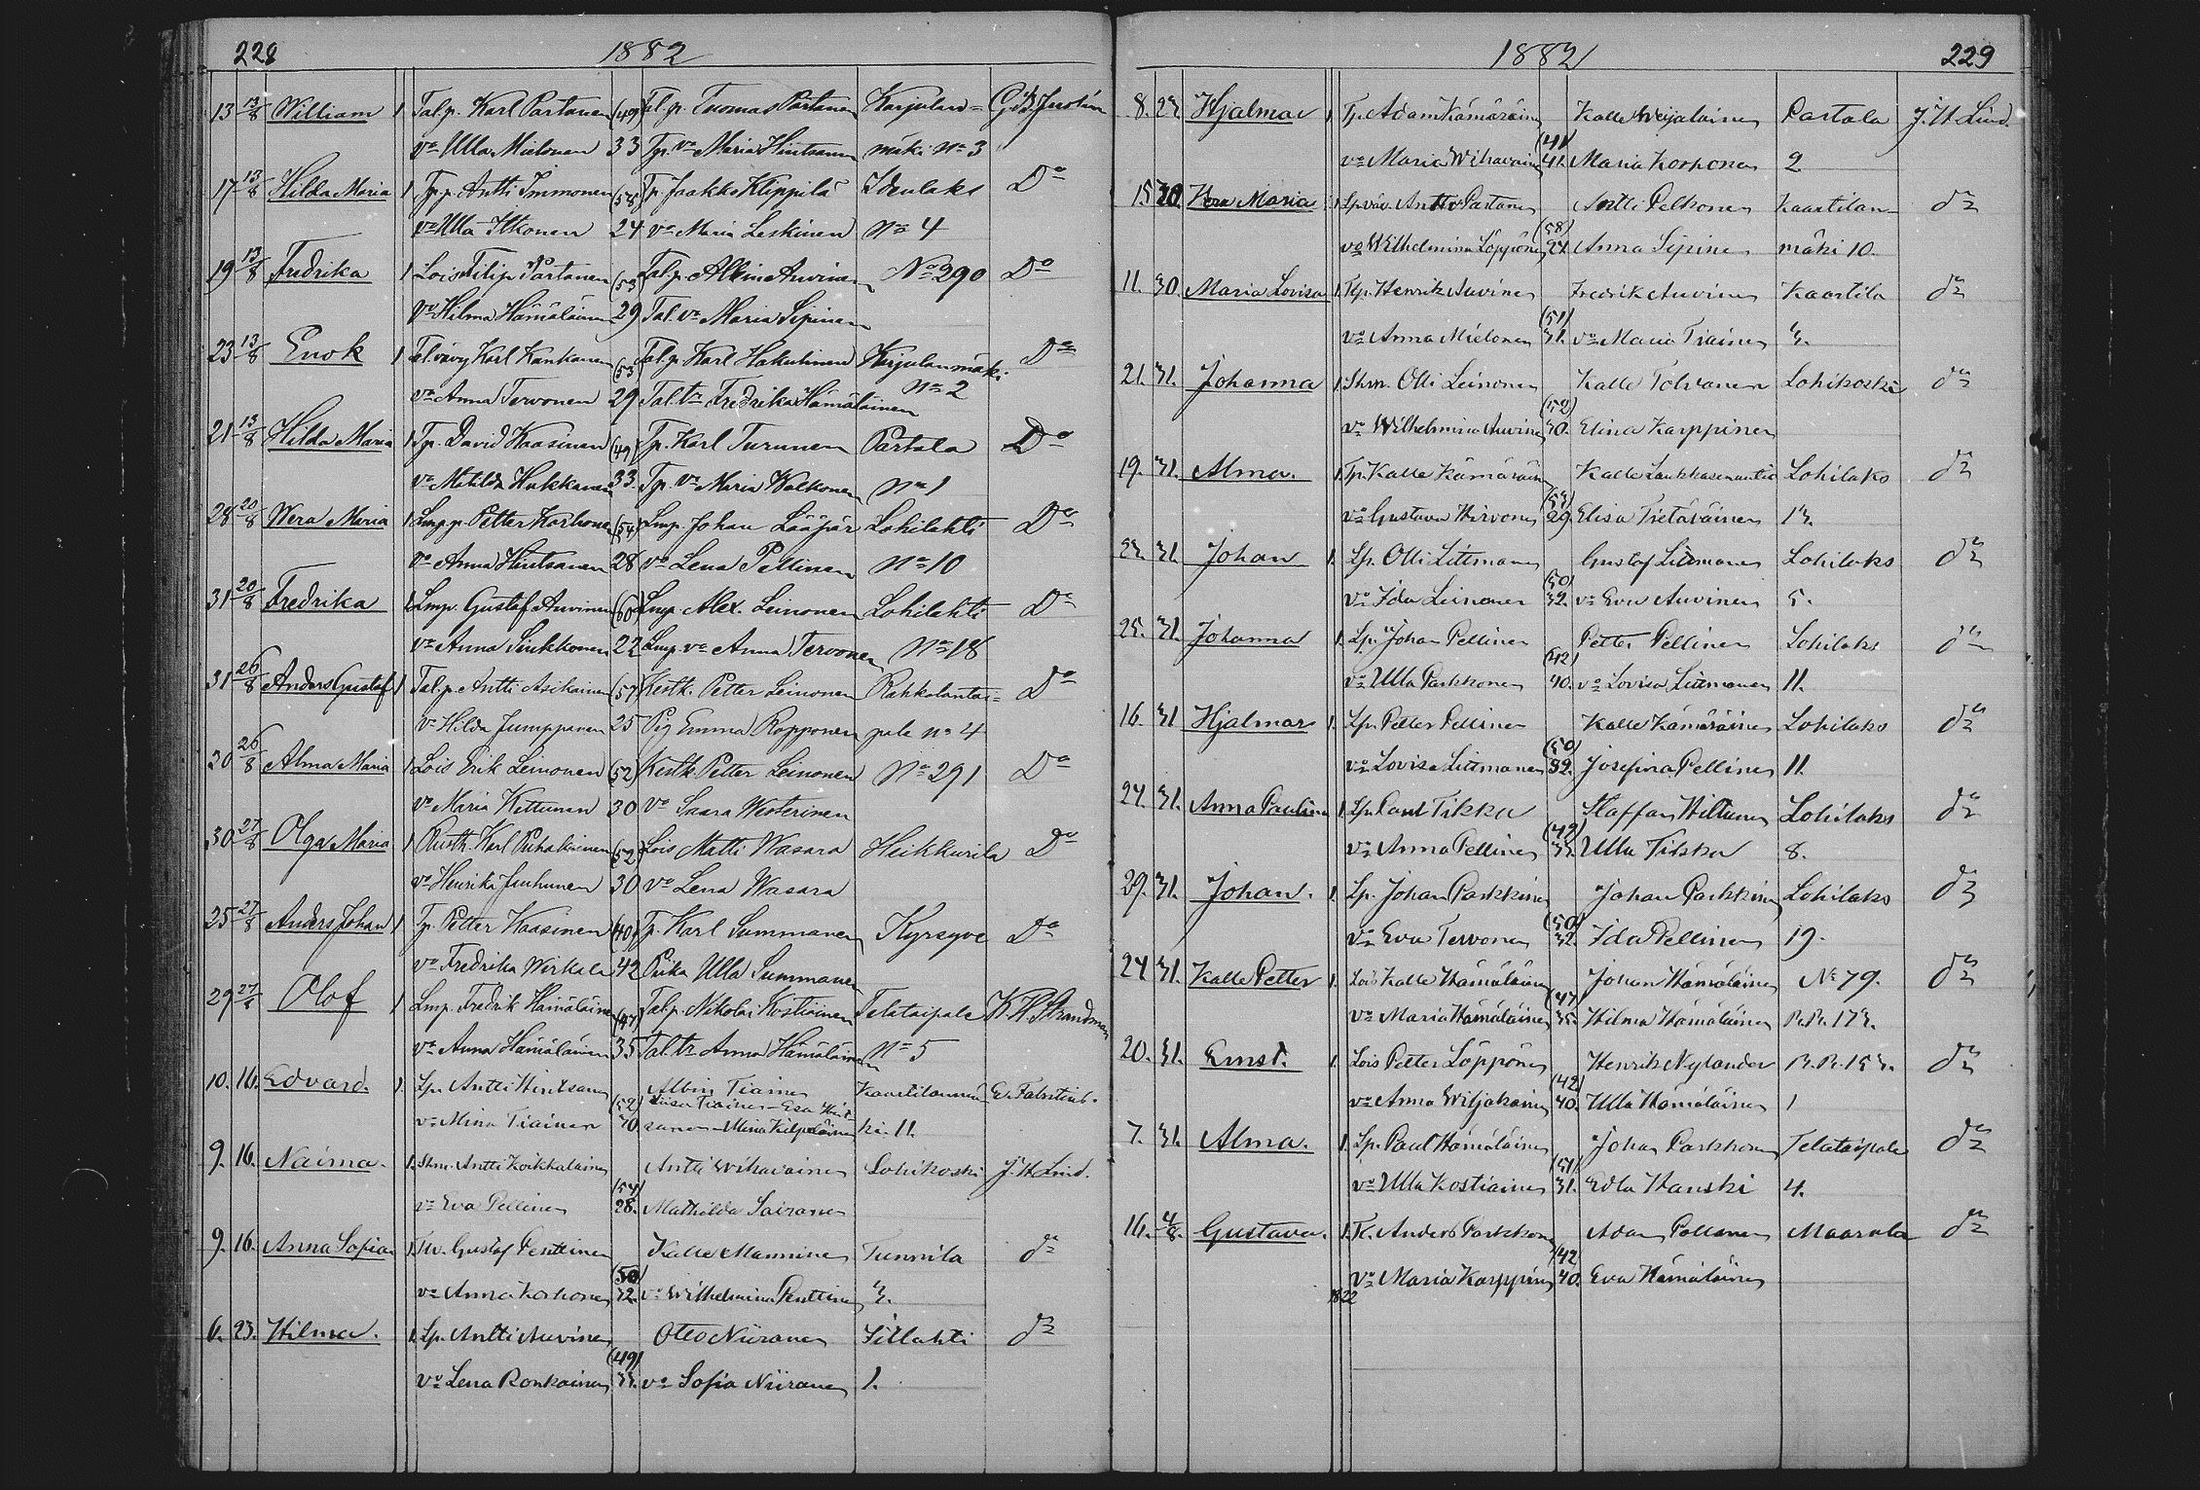 228 1882
13 13/8 William 1 Tal.p. Karl Partanen (49) Tal.p. Tuomas Partanen Karjulan= G. W. Justén
vo Ulla Mielonen 33 Tp. vo Maria Hintsanen mäki No 3
17 13/8 Hilda Maria 1 Tp.p. Antti Immonen (58) Tp. Jaakko Kleppilä Idenlaks Do
vo Ulla Itkonen 24 vo Maria Leskinen No 4
19 13/8 Fredrika 1 Lois Filip Partanen (53) Tal.p. Albin Auvinen No 290 Do
vo Hilma Hämäläinen 29 Tal. vo Maria Sipinen
23 13/8 Enok 1 Tal.vävy Karl Kankanen (53) Tal.p. Karl Hakulinen Karjulanmäki Do
vo Anna Tervonen 29 Tal. tr Fredrika Hämäläinen No 2
21 13/8 Hilda Maria 1 Tp. David Kaasinen (49) Tp. Karl Turunen Partala Do
vo Matilda Hukkanen 33 Tp. vo Maria Walkonen No 1
28 20/8 Wera Maria 1 Lmp.p. Petter Korhonen (54) Lmp. Johan Lääpär Lohilahti Do
vo Anna Hintsanen 28 vo Lena Pellinen No 10
31 20/8 Fredrika 1 Lmp. Gustaf Auvinen (60) Lmp. Alex. Leinonen Lohilahti Do
vo Anna Sinkkonen 22 Lmp. vo Anna Tervonen No 18
31 26/8 Anders Gustaf 1 Tal.p. Antti Asikainen (57) Kestk. Petter Leinonen Rahkolantai= Do
vo Hilda Jumppanen 25 Pig Emma Ropponen pale No 4
30 26/8 Alma Maria 1 Lois Erik Leinonen (52) Kestk. Petter Leinonen No 291 Do
vo Maria Kettunen 30 vo Saara Westerinen
30 27/8 Olga Maria 1 Rusth. Karl Puhakainen (52) Lois Matti Wasara Heikkurila Do
vo Henrika Jauhunen 30 vo Lena Wasara
25 27/8 Anders Johan 1 Tp. Petter Kaasinen (40) Tp. Karl Summanen Kyrsyve Do
vo Fredrika Wirkala 42 Piika Ulla Summanen
29 27/8 Olof 1 Lmp. Fredrik Hämäläinen (47) Tal.p. Nikolai Kostiainen Telataipale K. H. Strandman
vo Anna Hämäläinen 35 Tal. tr Anna Hämäläinen No 5
10. 16. Edvard. 1. Lp. Antti Hintsanen Albin Tiainen Kaartilanmä E. Fabritius.
(52) Liisa Tiainen - Esa Hint=
vo Mina Tiainen 30 sanen - Mina Kilpeläinen ki 11.
9. 16. Naima. 1. Skm. Antti Koikkalainen Antti Wihavainen Lohikoski J. H. Lind.
(54)
vo Eva Pellinen 28. Mathilda Sairanen
9. 16. Anna Sofia 1. Tlv. Gustaf Penttinen Kalle Manninen Tunnila do
(50)
vo Anna Korhonen 32. vo Wilhelmina Penttinen 3.
6. 23. Hilma. 1. Lp. Antti Auvinen Otto Niiranen Sillahti do
(49)
vo Lena Ronkainen 33. vo Sofia Niiranen 1.
1882 229
8. 23. Hjalmar 1 Tp. Adam Kämäräinen Kalle Weijalainen Partala J. H. Lind.
(41)
vo Maria Wihavainen 41. Maria Korhonen 2
15 30. Wera Maria 1 Lp.väv. Antti Partanen Antti Pelkonen Kaartilan- do
(58)
vo Wilhelmina Löppönen 24. Anna Sipinen mäki 10.
11. 30. Maria Lovisa 1. Tp. Henrik Auvinen Fredrik Auvinen Kaartila do
(51)
vo Anna Mielonen 31. vo Maria Tiainen 3.
21. 31. Johanna 1. Skm. Olli Leinonen Kalle Tolvanen Lohikoski do
(52)
vo Wilhelmina Auvinen 30. Elina Karppinen
19. 31. Alma. 1. Tp. Kalle Kämäräinen Kalle Laukkasenantti Lohilaks do
(53)
vo Gustava Hirvonen 29. Elisa Tietäväinen 13.
23. 31. Johan 1. Lp. Olli Litmanen Gustaf Litmanen Lohilaks do
(50)
vo Ida Leinonen 32. vo Eva Auvinen 5.
25. 31. Johanna 1. Lp. Johan Pellinen Petter Pellinen Lohilaks do
(42)
vo Ulla Parkkonen 40. vo Lovisa Litmanen 11.
16. 31. Hjalmar 1. Lp. Petter Pellinen Kalle Kämäräinen Lohilaks do
(50)
vo Lovisa Litmanen 32. Josefina Pellinen 11.
24. 31. Anna Paulina 1. Lp. Paul Tikka Staffan Hiltunen Lohilaks do
(49)
vo Anna Pellinen 33. Ulla Tikka 8.
29. 31. Johan. 1. Lp. Johan Parkkinen Johan Parkkinen Lohilaks do
(50)
vo Eva Tervonen 32. Ida Pellinen 19.
24. 31. Kalle Petter 1. Lois Kalle Hämäläinen Johan Hämäläinen No 79. do
(47)
vo Maria Hämäläinen 35. Hilma Hämäläinen R.R. 173.
20. 31. Ernst. 1. Lois Petter Löppönen Henrik Nylander R.R. 153. do
(42)
vo Anna Wiljakainen 40. Ulla Hämäläinen 1
7. 31. Alma. 1. Lp. Paul Hämäläinen Johan Parkkonen Telataipale do
(51)
vo Ulla Kostiainen 31. Edla Hanski 4.
16. 4/8. Gustava. 1. Tl. Anders Parkkonen Adam Pollanen Maarala do
(42)
vo Maria Karppinen 40. Eva Hämäläinen
1822